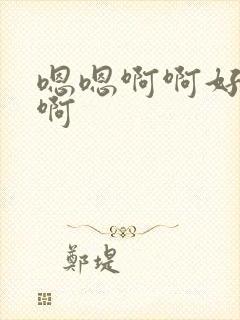 嗯嗯啊啊好
啊
鄭堤